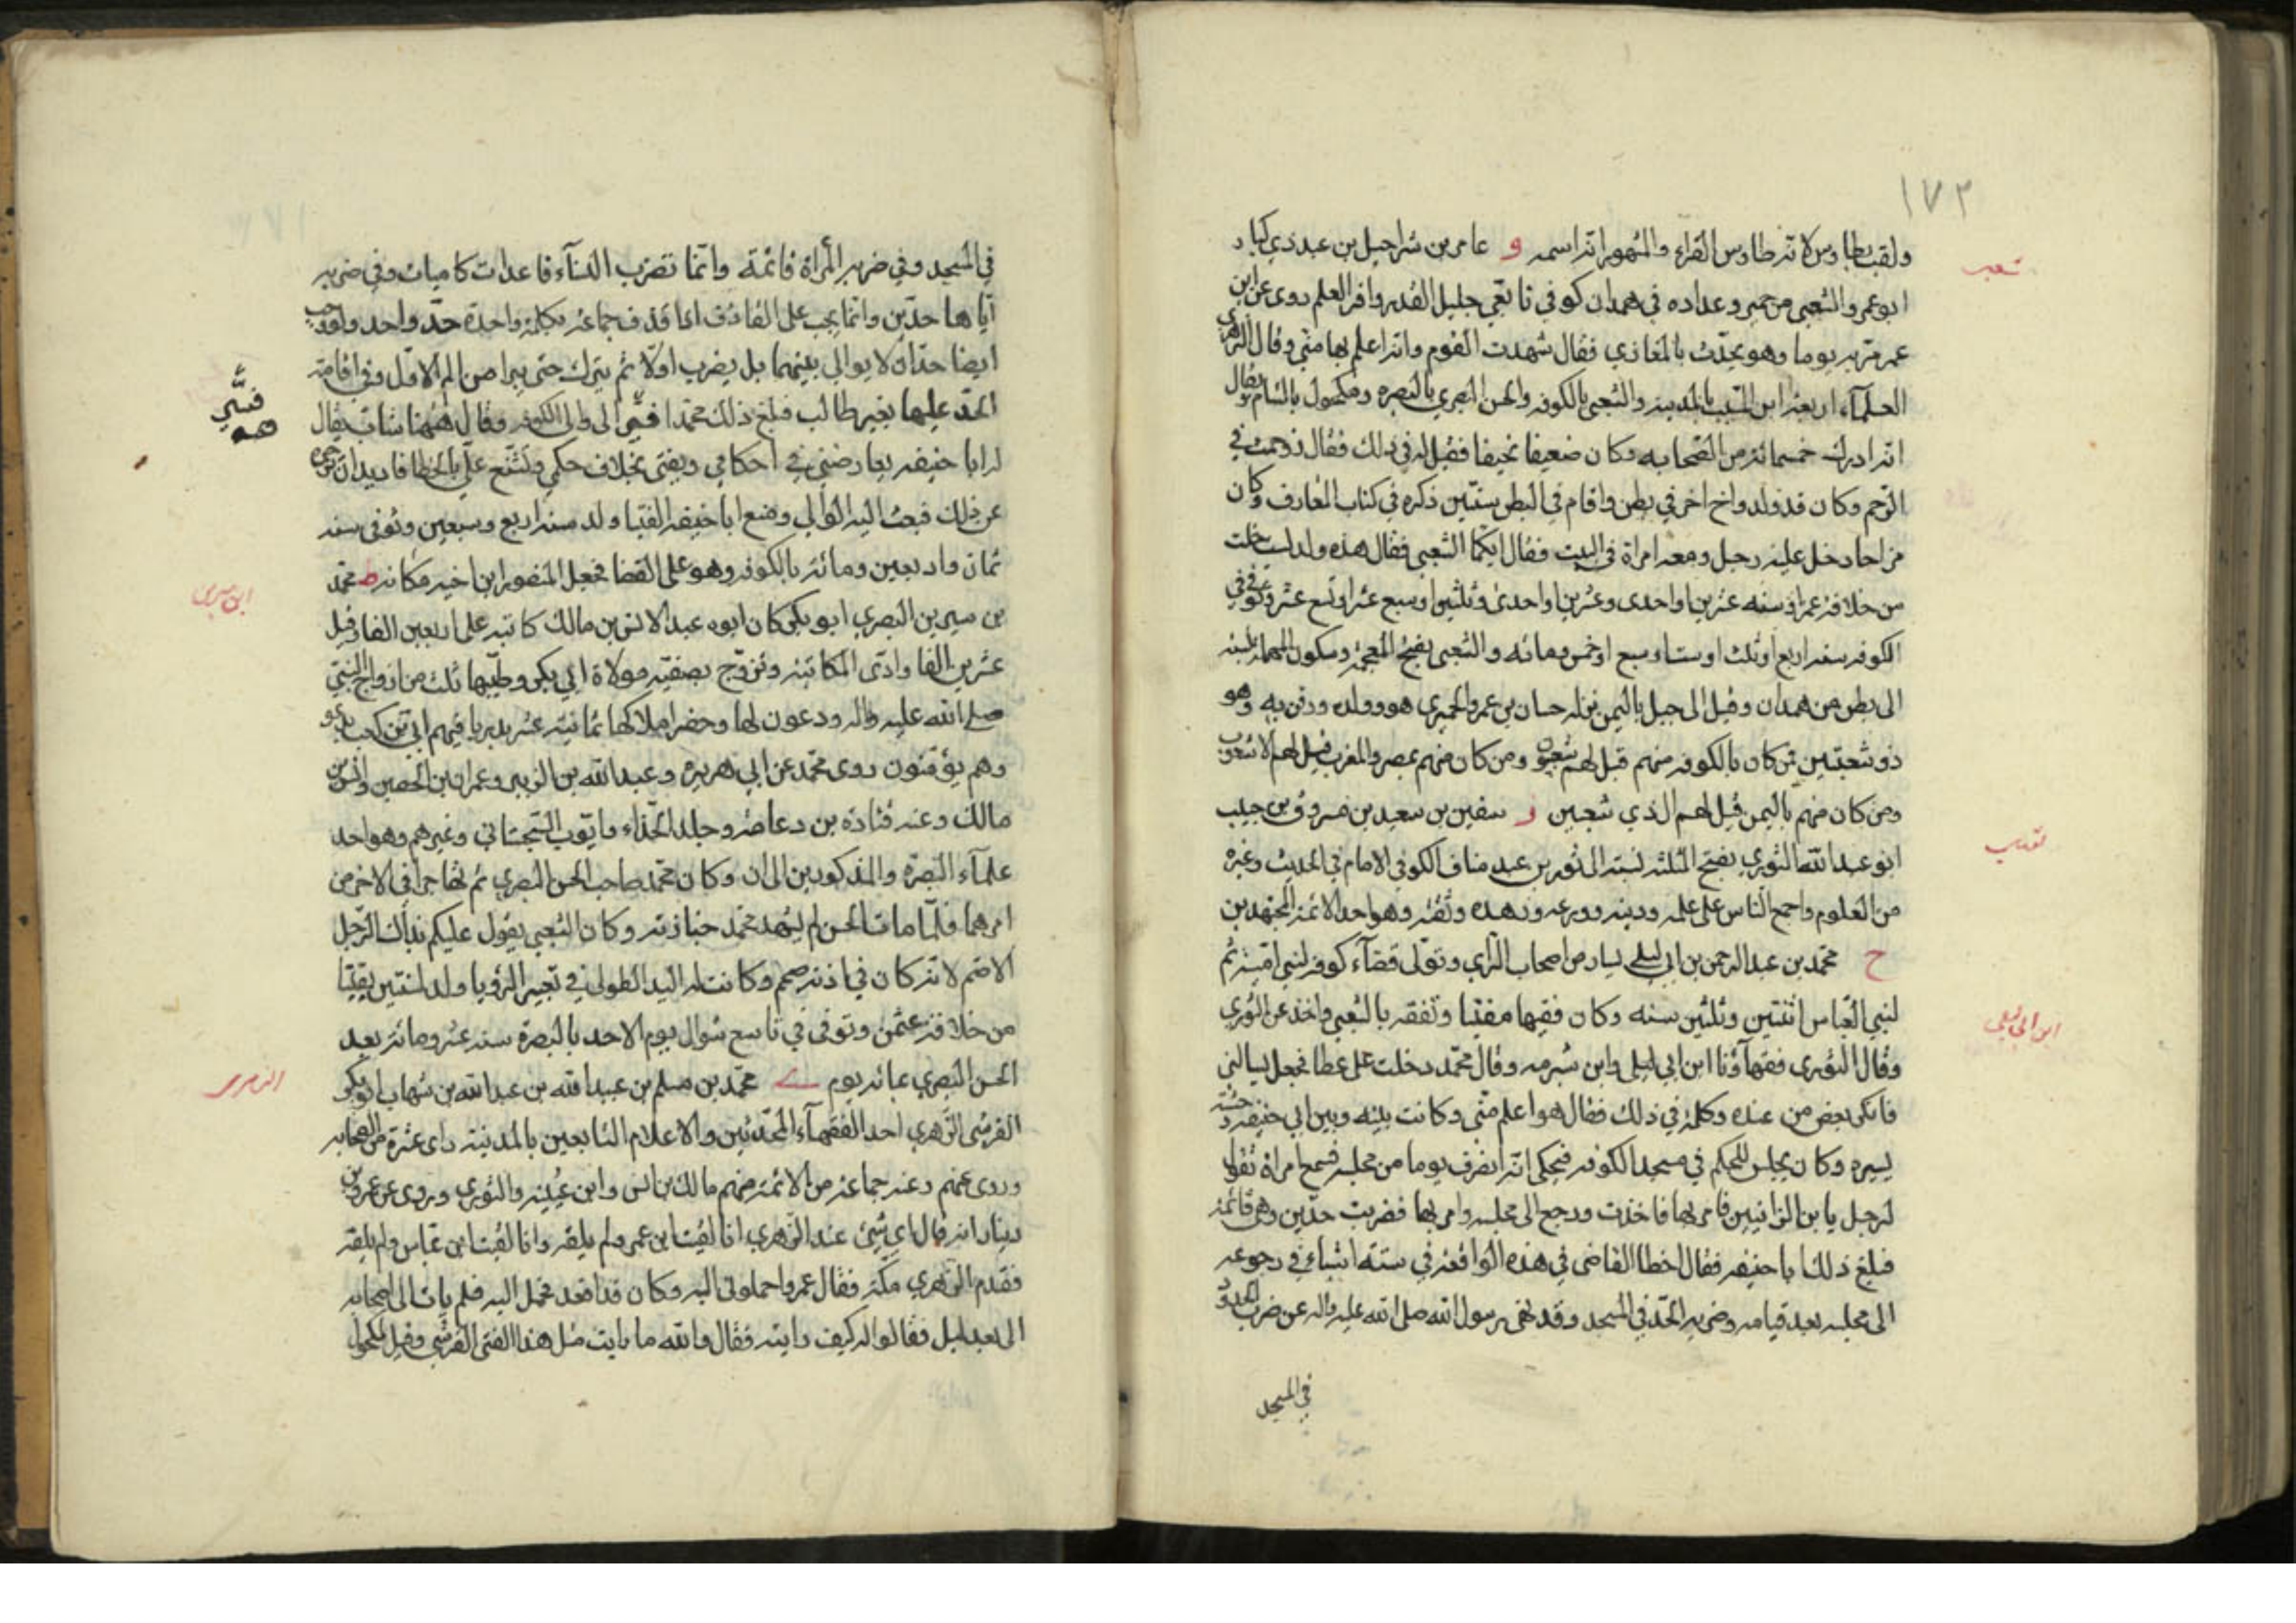 ١٧٢
ولقب بطاوس لانه طاوس القراء والمشهور انه اسمه و عامر بن شراحيل بن عبد ذي كبار
شعبى
ابو عمرو الشعبي من حمير وعداده في همدان كوفي تابعي جليل القدر وافر العلم روى عن ابن
عمر مر به يوما وهو يحدث بالمغازي فقال شهدت القوم وانه اعلم بها مني وقال الزهري
العلمآء اربعة ابن المسيب بالمدينة والشعبي بالكوفه والحسن البصري بالبصره ومكحول بالشام يقال
انه ادرك خمسمائه من الصحابه وكان ضعيفا نحيفا فقيل له في ذلك فقال زوحمت في
الرحم وكان قد ولد واخ اخر في بطن واقام في البطن سنتين ذكره في كتاب المعارف وكان
مزاحا دخل عليه رجل ومعه امراة في البيت فقال ايكما الشعبي فقال هذه ولد لست خلت
من خلافة عمر او سنه عشرين او احدى وعشرين او احدى وثلثين او سبع عشر او تسع عشر وتوفي في
الكوفه سنه اربع او ثلث او ست او سبع او خمس ومائه والشعبي بفتح المعجمة وسكون المهملة نسبة
الى بطن من همدان وقيل الى جبل باليمن نزله حسان بن عمرو الحميري هو وولده ودفن به وهو
ذو شعبتين فمن كان بالكوفه منهم قيل لهم شعبيون ومن كان منهم بمصر والمغرب قيل لهم الاشعوب
ومن كان منهم باليمن قيل لهم الذي شعبين ز سفين بن سعيد بن مسروق بن حبيب
ابو عبد الله الثوري بفتح المثلثه نسبة الى ثور بن عبد مناف الكوفي الامام في الحديث وغيره
من العلوم واجمع الناس على علمه ودينه وورعه وزهده وثقته وهو احد الائمة المجتهدين
ح محمد بن عبد الرحمن بن ابي ليلى يسار من اصحاب الراي وتولى قضآء كوفه لبني امية ثم
ابن ابى ليلى
لبني العباس اثنتين وثلثين سنه وكان فقيها مفتيا وتفقه بالشعبي واخذ عن الثوري
وقال الثوري فقهآؤنا ابن ابي ليلى وابن شبرمه وقال محمد دخلت على عطا فجعل يسالني
فانكر بعض من عنده وكلمه في ذلك فقال هوا علم مني وكانت بينه وبين ابي حنيفه وحشة
يسيره وكان يجلس للحكم في مسجد الكوفه فيحكى انه انصرف يوما من مجلسه فسمع امراة تقول
لرجل يا بن الزانيين فامر بها فاخذت ورجع الى مجلسه وامر بها فضربت حدين وهي قائمة
فبلغ ذلك ابا حنيفه فقال اخطا القاضي في هذه الواقعة في ستة اشياء في رجوعه
الى مجلسه بعد قيامه وضربه الحد في المسجد وقد نهى رسول الله صلى الله عليه واله عن ضرب الحدود
في المسجد
في المسجد وفي ضربه المرأة قائمة وانما تضرب النسآء قاعدات كاسيات وفي ضربه
اياها حدين وانما يجب على القاذف اذا قذف جماعة بكلمة واحدة حد واحد ولو وجب
ايضا حدان لا يوالي بينهما بل يضرب اولا ثم يترك حتى يبرا من الم الاول وفي اقامة
الحد عليها بغير طالب فبلغ ذلك محمدا فسير الى والى الكوفه وقال ههنا شاب يقال
له ابا حنيفه يعارضني في احكامي ويفتي بخلاف حكمي ويشنع علي بالخطا فاريد ان تزجره
عن ذلك فبعث اليه الوالي ومنع ابا حنيفه الفتيا ولد سنه اربع وسبعين وتوفى سنه
ثمان واربعين ومائة بالكوفه وهو على القضا فجعل المنصور ابن اخيه مكانه ط محمد
ابن سيرين
بن سيرين البصري ابو بكر كان ابوه عبدا لانس بن مالك كاتبه على اربعين الفا وقيل
عشرين الفا وادى المكاتبة وتزوج بصفيه مولاة ابي بكر وطيبها ثلث من ازواج النبي
صلى الله عليه واله ودعون لها وحضر املاكها ثمانية عشر بدريا فيهم ابي بن كعب يدعو
وهم يؤمنون روى محمد عن ابي هريره وعبد الله بن الزبير وعمران بن الحصين وانس بن
مالك وعنه قتادة بن دعامه وخلد الحذاء وايوب السجستاني وغيرهم وهو احد
علمآء البصره والمذكورين الى الان وكان محمد صاحب الحسن البصري ثم تهاجرا في الاخر من
امرهما فلما مات الحسن لم يشهد محمد جنازته وكان الشعبي يقول عليكم بذلك الرجل
الاصم لانه كان في اذنه صمم وكانت له اليد الطولى في تعبير الرؤيا ولد لسنتين بقيتا
من خلافة عثمن وتوفى في تاسع شوال يوم الاحد بالبصرة سنه عشر ومائة بعد
الحسن البصري بمائه يوم ي محمد بن مسلم بن عبيد الله بن عبد الله بن شهاب ابو بكر
الزهرى
القرشي الزهري احد الفقهآء المحدثين والاعلام التابعين بالمدينة راى عشرة من الصحابه
وروى عنهم وعنه جماعة من الائمة منهم مالك بن انس وابن عيينه والثوري وروى عن عمرو بن
دينار انه قال اي شيئ عند الزهري انا لقيت ابن عمر ولم يلقه وانا لقيت ابن عباس ولم يلقه
فقدم الزهري مكة فقال عمرو احملوني اليه وكان قد اقعد فحمل اليه فلم يات الى اصحابه
الى بعد ليل فقالوا له كيف رايته فقال والله ما رايت مثل هذا الفتى القرشي وقيل لمكحول